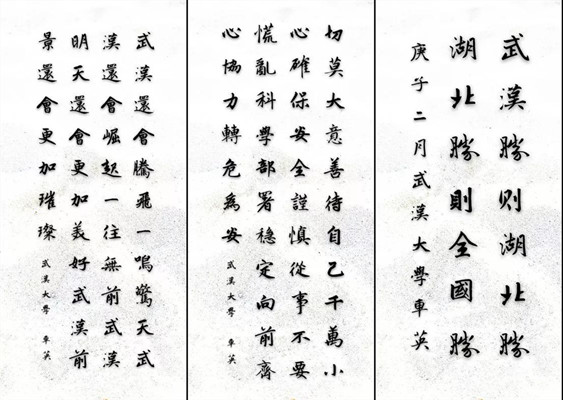 武漢勝则湖北勝
湖北勝則全國勝
庚子二月武漢大學車英
切莫大意善待自己千萬小
心確保安全謹慎從事不要
慌亂科學部署稳定向前齊
心協力轉危為安 武漢大學 車英
武漢還會騰飛一鳴驚天武
漢還會崛起一往無前武漢
明天還會更加美好武漢前
景還會更加璀璨 武漢大學 車英